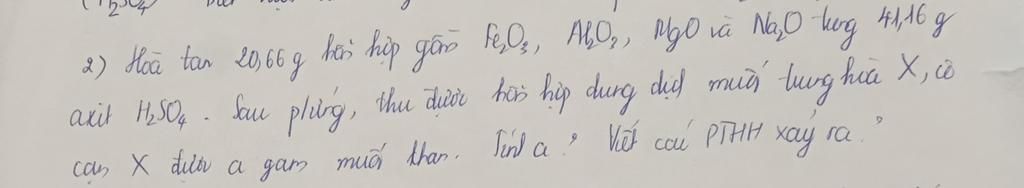 (H₂SO₄)
2) Hoà tan 20,66 g hỗn hợp gồm Fe₂O₃, Al₂O₃, MgO và Na₂O trong 41,16 g
axit H₂SO₄. Sau phứng, thu được hỗn hợp dung dịd muối trung hoà X, cô
cạn X được a gam muối khan. Tính a? Viết các PTHH xảy ra?